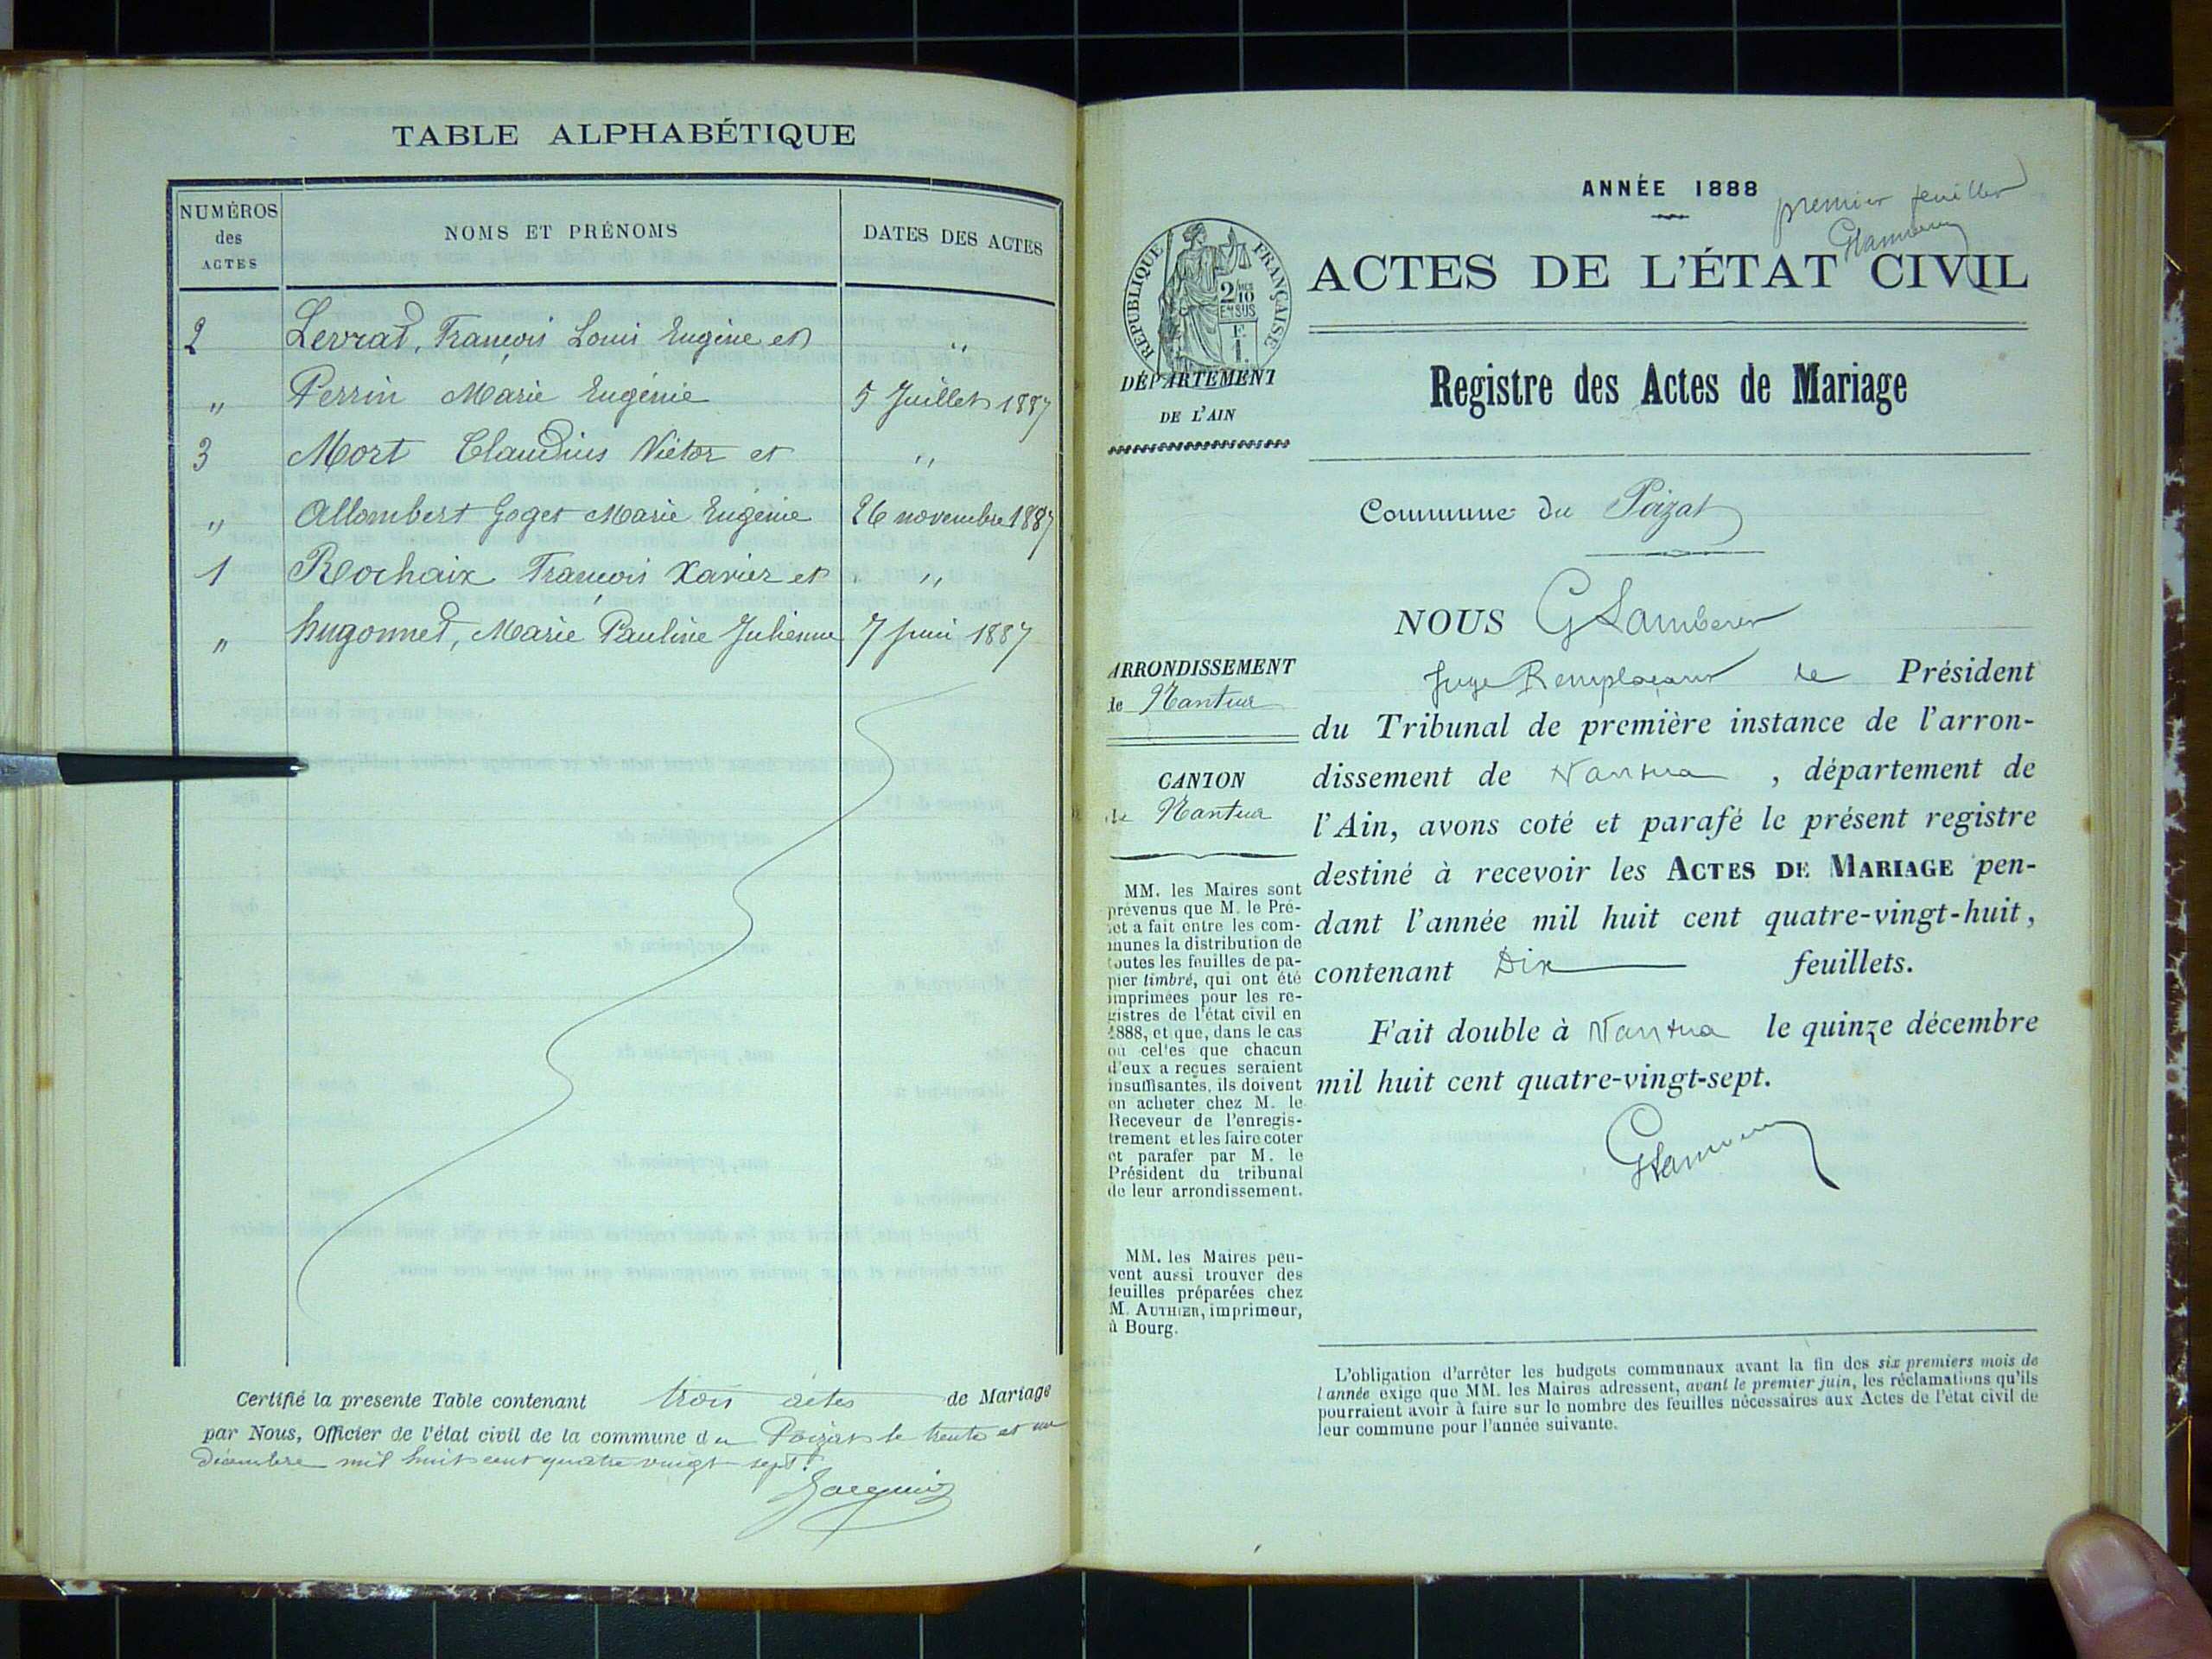 TABLE ALPHABÉTIQUE
NUMÉROS
des
ACTES
NOMS ET PRÉNOMS
DATES DES ACTES
2 Levrat, François Louis Eugène et ,,
,, Perrin Marie Eugénie 5 Juillet 1887
3 Mort Claudius Victor et ,,
,, Allombert Goget Marie Eugénie 26 novembre 1887
1 Rochaix François Xavier et ,,
,, hugonnet, Marie Pauline Julienne 7 Juin 1887
Certifié la presente Table contenant trois actes de Mariage
par Nous, Officier de l'état civil de la commune du Poizat le trente et un
décembre mil huit cent quatre vingt sept.
Jacquin
ANNÉE 1888
premier feuillet
RÉPUBLIQUE FRANÇAISE
2/10
EN SUS
F
1.
ACTES DE L'ÉTAT CIVIL
DÉPARTEMENT
DE L'AIN
Registre des Actes de Mariage
Commune du Poizat
NOUS
ARRONDISSEMENT
de Nantua
CANTON
de Nantua
MM. les Maires sont
prévenus que M. le Pré-
fet a fait entre les com-
munes la distribution de
toutes les feuilles de pa-
pier timbré, qui ont été
imprimées pour les re-
gistres de l'état civil en
1888, et que, dans le cas
où celles que chacun
d'eux a reçues seraient
insuffisantes, ils doivent
en acheter chez M. le
Receveur de l'enregis-
trement et les faire coter
et parafer par M. le
Président du tribunal
de leur arrondissement.
MM. les Maires peu-
vent aussi trouver des
feuilles préparées chez
M. AUTHIER, imprimeur,
à Bourg.
Juge Remplaçant le Président
du Tribunal de première instance de l'arron-
dissement de Nantua, département de
l'Ain, avons coté et parafé le présent registre
destiné à recevoir les ACTES DE MARIAGE pen-
dant l'année mil huit cent quatre-vingt-huit,
contenant Dix feuillets.
Fait double à Nantua le quinze décembre
mil huit cent quatre-vingt-sept.
L'obligation d'arrêter les budgets communaux avant la fin des six premiers mois de
l'année exige que MM. les Maires adressent, avant le premier juin, les réclamations qu'ils
pourraient avoir à faire sur le nombre des feuilles nécessaires aux Actes de l'état civil de
leur commune pour l'année suivante.